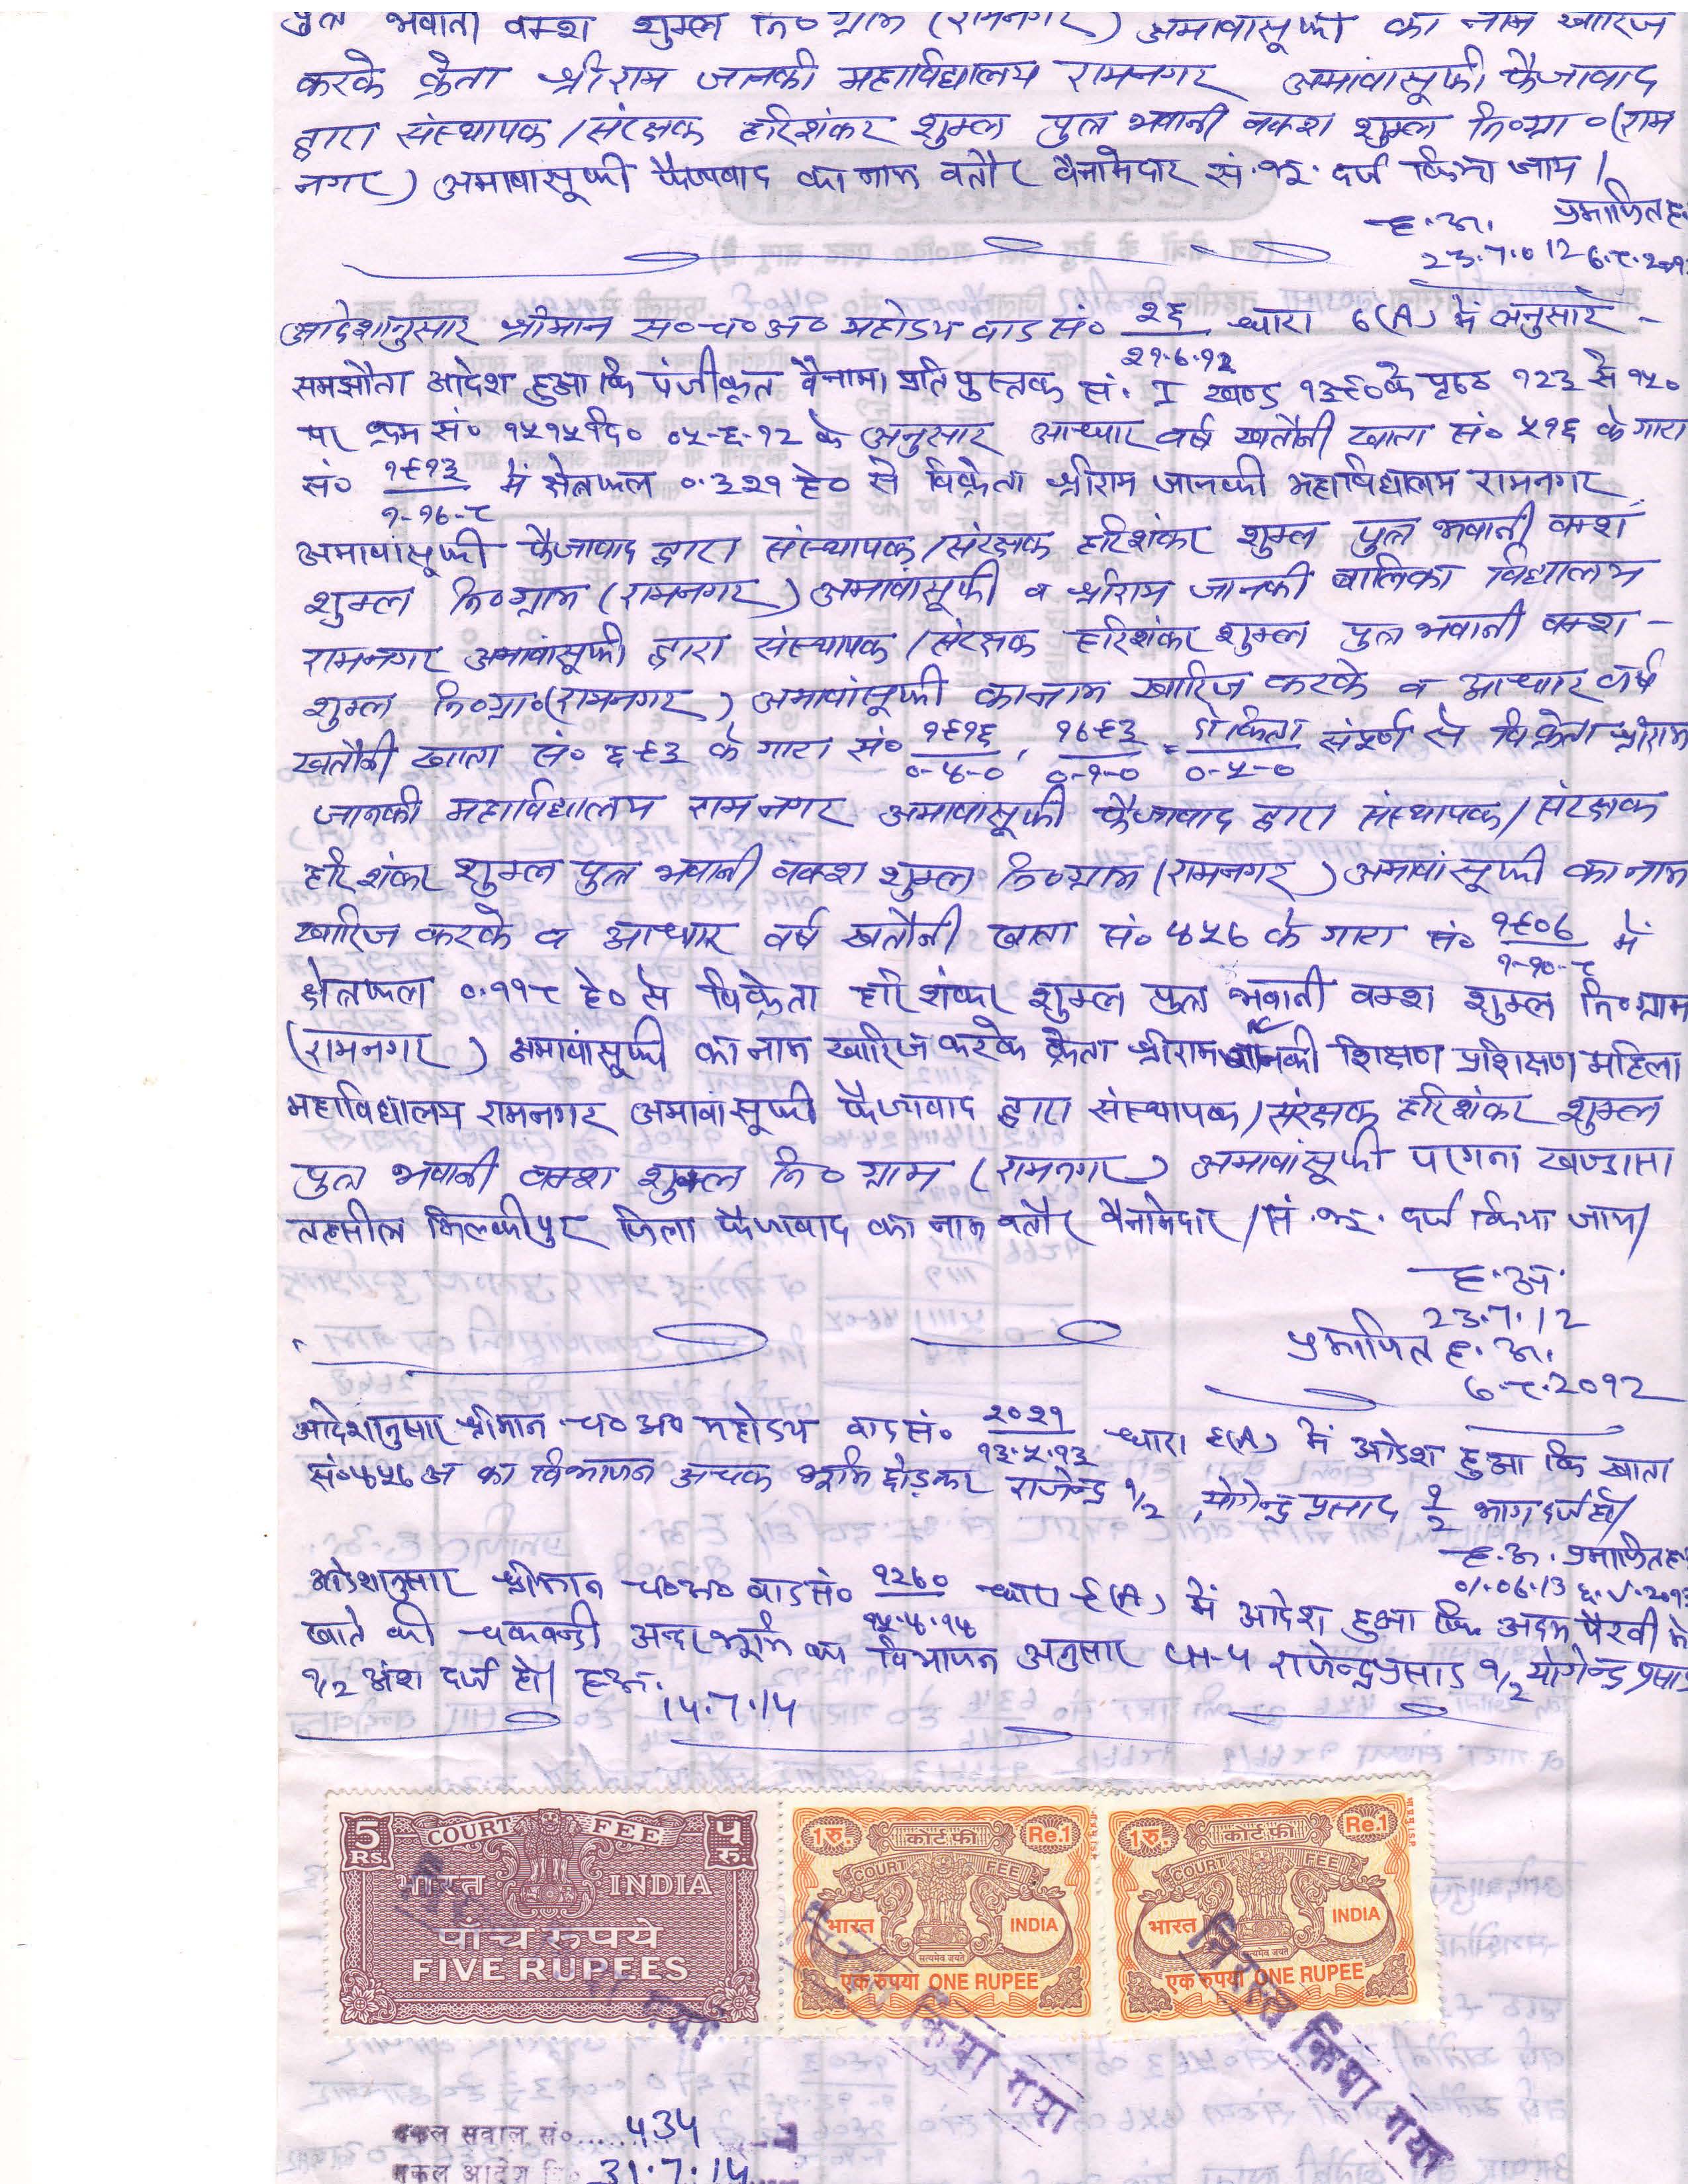 पुत्र भवानी वक्श शुक्ल नि० ग्राम (रामनगर) अमावांसूफी का नाम खारिज
करके क्रेता श्रीराम जानकी महाविद्यालय रामनगर अमावांसूफी फैजावाद
द्वारा संस्थापक/संरक्षक हरिशंकर शुक्ल पुत्र भवानी वकश शुक्ल नि०ग्रा०(राम
नगर) अमावांसूफी फैजावाद का नाम वतौर वैनामेदार सं.भू. दर्ज किया जाय।
ह.अ. प्रमाणित ह.
23.7.012
आदेशानुसार श्रीमान स०च०अ० महोदय वाद सं० २६/२१.6.१२ धारा 6(A) में अनुसार -
समझौता आदेश हुआ कि पंजीकृत वैनामा प्रति पुस्तक सं. I खण्ड १३९० के पृष्ठ १२३ से १५०
पर क्रम सं० १५१५ दि० ०५-६-१२ के अनुसार आधार वर्ष खतौनी खाता सं० ५१६ के गाटा
सं० १९१३/१-१६-८ में क्षेत्रफल ०.३२१ हे० से विक्रेता श्रीराम जानकी महाविद्यालय रामनगर
अमावांसूफी फैजावाद द्वारा संस्थापक/संरक्षक हरिशंकर शुक्ल पुत्र भवानी वक्श
शुक्ल नि०ग्राम (रामनगर) अमावांसूफी व श्रीराम जानकी बालिका विद्यालय
रामनगर अमावांसूफी द्वारा संस्थापक/संरक्षक हरिशंकर शुक्ल पुत्र भवानी वक्श -
शुक्ल नि०ग्रा०(रामनगर) अमावांसूफी का नाम खारिज करके व आधार वर्ष
खतौनी खाता सं० ६९३ के गाटा सं० १९१६/०-४-०, १६९३/०-१-० = दो किता/०-५-० संपूर्ण से विक्रेता श्रीराम
जानकी महाविद्यालय रामनगर अमावांसूफी फैजावाद द्वारा संस्थापक/संरक्षक
हरिशंकर शुक्ल पुत्र भवानी वकश शुक्ल नि०ग्राम (रामनगर) अमावांसूफी का नाम
खारिज करके व आधार वर्ष खतौनी खाता सं० ४५७ के गाटा सं० १९०७/१-१०-८ में
क्षेत्रफल ०.११८ हे० से विक्रेता हरिशंकर शुक्ल पुत्र भवानी वक्श शुक्ल नि०ग्राम
(रामनगर) अमावांसूफी का नाम खारिज करके क्रेता श्रीराम जानकी शिक्षण प्रशिक्षण महिला
महाविद्यालय रामनगर अमावांसूफी फैजावाद द्वारा संस्थापक/संरक्षक हरिशंकर शुक्ल
पुत्र भवानी वक्श शुक्ल नि० ग्राम (रामनगर) अमावांसूफी परगना खण्डासा
तहसील मिल्कीपुर जिला फैजावाद का नाम वतौर वैनामेदार/सं.भू. दर्ज किया जाय।
ह.अ.
23.7.12
प्रमाणित ह.अ.
७.८.2०१2
आदेशानुसार श्रीमान च०अ० महोदय वाद सं० २०२१/१३.५.१३ धारा ९(A) में आदेश हुआ कि खाता
सं०४५७अ का विभाजन अचक भूमि छोड़कर राजेन्द्र १/२, योगेन्द्र प्रसाद १/२ भाग दर्ज हो।
ह.अ. प्रमाणित ह.
01.06.13
आदेशानुसार श्रीमान च०अ० वाद सं० १२६०/१५.४.१४ धारा ९(A) में आदेश हुआ कि अदम पैरवी में
खाते की चकबन्दी अन्दर भूमि का विभाजन अनुसार CH-५ राजेन्द्रप्रसाद १/२ योगेन्द्र प्रसाद
१/२ अंश दर्ज हो। ह.अ.
14.7.14
5 Rs. COURT FEE ५ रु.
भारत INDIA
पाँच रुपये
FIVE RUPEES
1रु. कोर्ट फी Re.1
COURT FEE
भारत INDIA
सत्यमेव जयते
एक रुपया ONE RUPEE
1रु. कोर्ट फी Re.1
COURT FEE
भारत INDIA
सत्यमेव जयते
एक रुपया ONE RUPEE
गया
किया गया
निरस्त किया गया
नकल सवाल सं०......434
नकल आदेश दि० 31.7.14